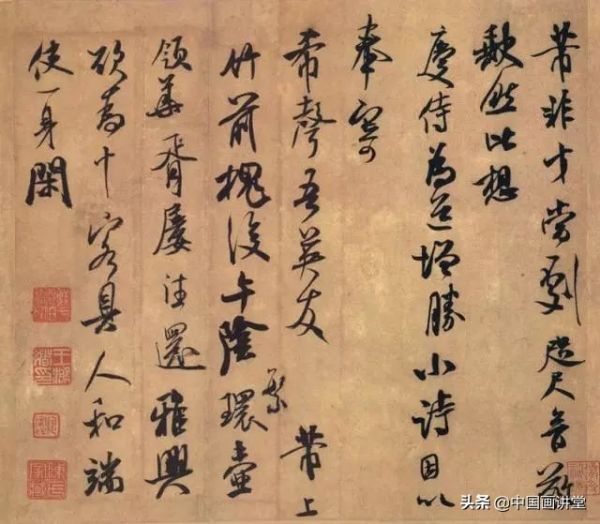 芾非才當劇咫尺音敬
缺然比想
慶侍為道增勝小詩因以
奉寄
希聲吾英友 芾上
竹前槐後午陰環壺
繁
領華胥屢往還雅興
欲為十客具人和端
使一身閑
头条 @中国画讲堂